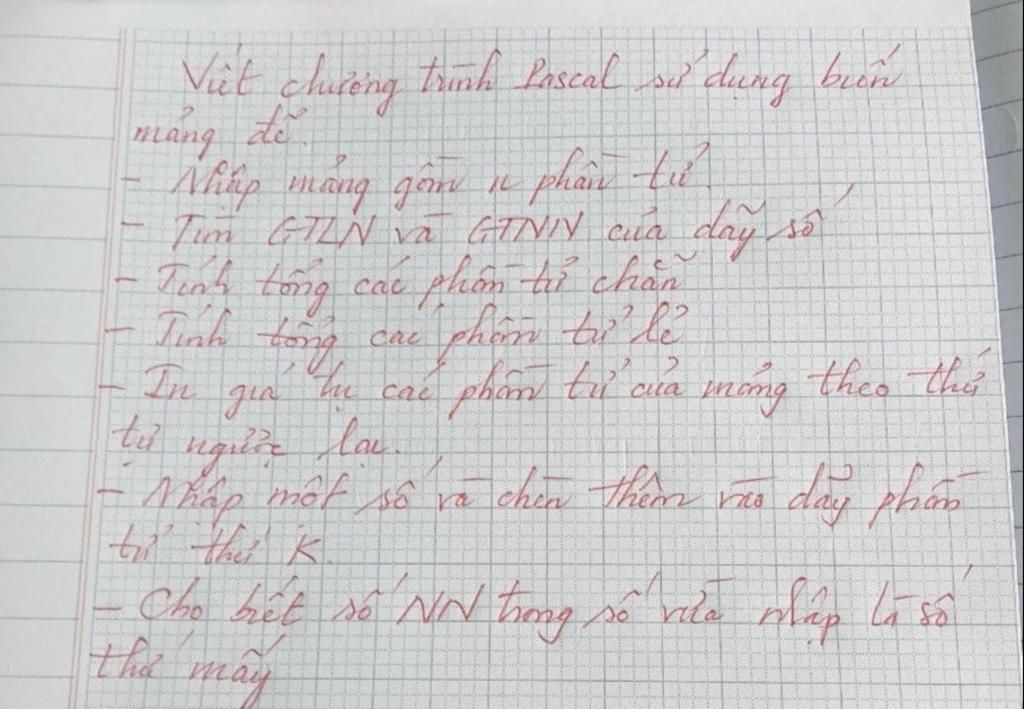 Viết chương trình Pascal sử dụng biến
mảng để.
- Nhập mảng gồm n phần tử.
- Tìm GTLN và GTNN của dãy số
- Tính tổng các phần tử chẵn
- Tính tổng các phần tử lẻ
- In giá trị các phần tử của mảng theo thứ
tự ngược lại.
- Nhập một số và chèn thêm vào dãy phần
tử thứ K.
- Cho biết số NN trong số vừa nhập là số
thứ mấy